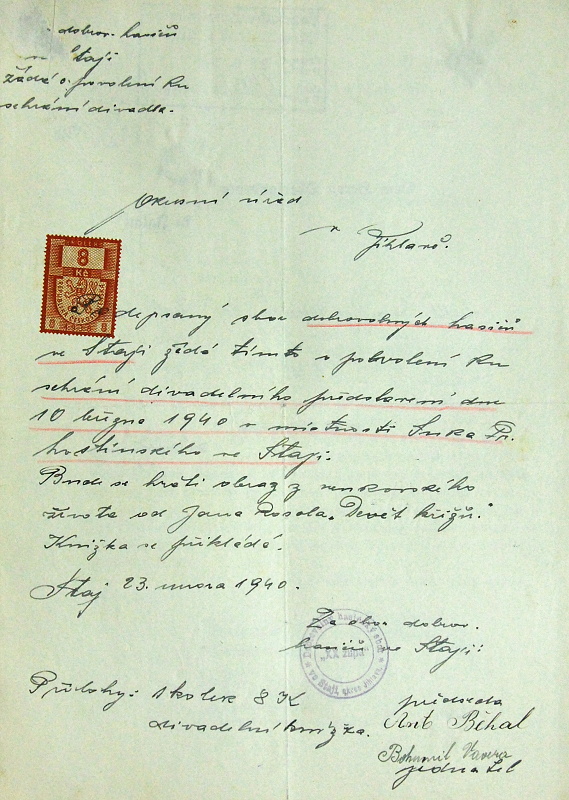 dobrov. hasičů
ve Staji
žádá o povolení ku
sehrání divadla.
Okresní úřad
v Jihlavě.
KOLEK
8
Kč
8 8
depsaný sbor dobrovolných hasičů
ve Staji žádá tímto o povolení ku
sehrání divadelního představení dne
10 března 1940 v místnosti Suka Fr.
hostinského ve Staji.
Bude se hráti obraz z venkovského
života od Jana Rosola „Devět křížů."
Knížka se přikládá.
Staj 23. února 1940.
Za sbor dobrov.
hasičů ve Staji:
Přílohy: 1 kolek 8 K
divadelní knížka.
předseda
Ant Běhal
Bohumil Vavera
jednatel
hasičský sbor
ve Staji,
župa